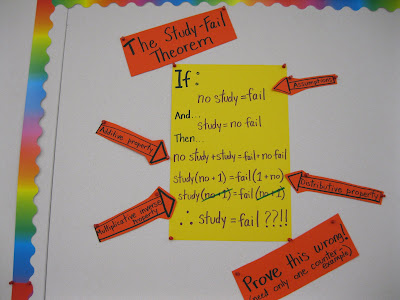 The Study-Fail
Theorem
If:
no study = fail
Assumptions
And...
study = no fail
Then...
Additive property
no study + study = fail + no fail
study (no + 1) = fail (1 + no)
Distributive property
study (no + 1) = fail (no + 1)
Multiplicative inverse
property
∴ study = fail ??!!
Prove this wrong!
(need only one counter-
example)